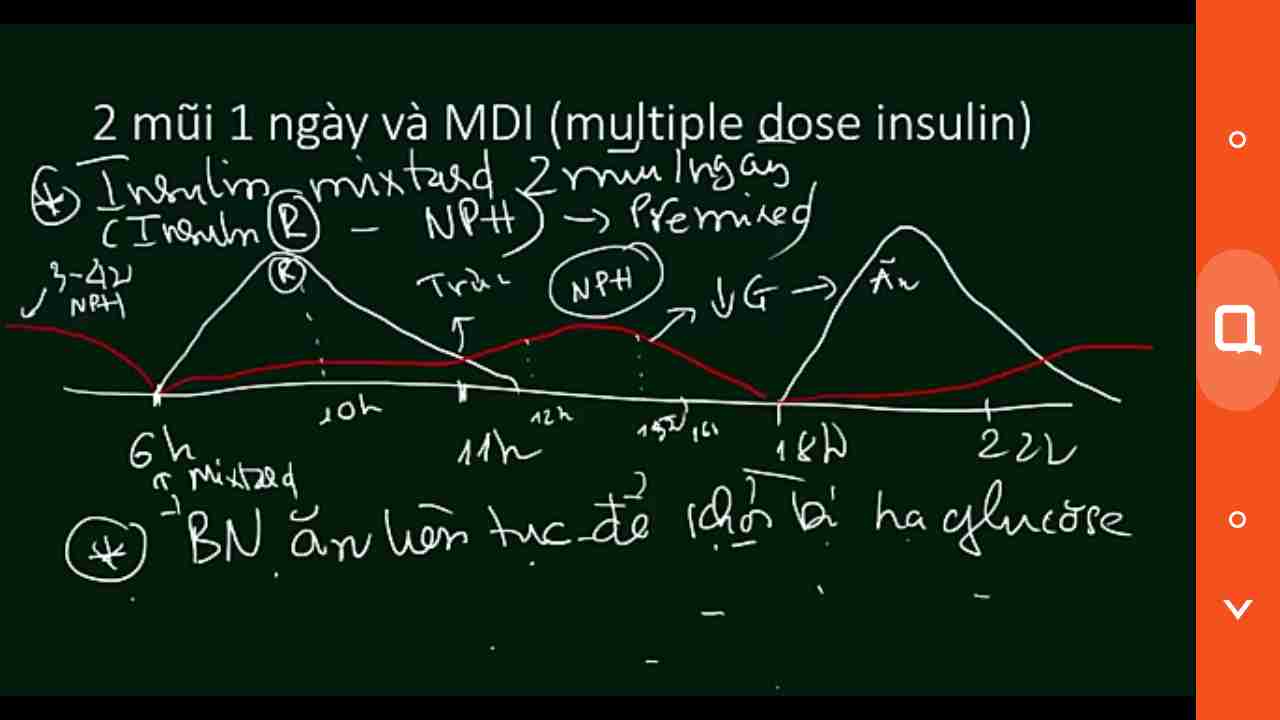 2 mũi 1 ngày và MDI (multiple dose insulin)
Insulin mixtard 2 mũi 1 ngày
(Insulin R - NPH) → Premixed
3-4h
NPH
R
Trưa
NPH
↓G → Ăn
10h
12h
15h
16h
6h
11h
18h
22h
↑ mixtard
* BN ăn liên tục để khỏi bị hạ glucose